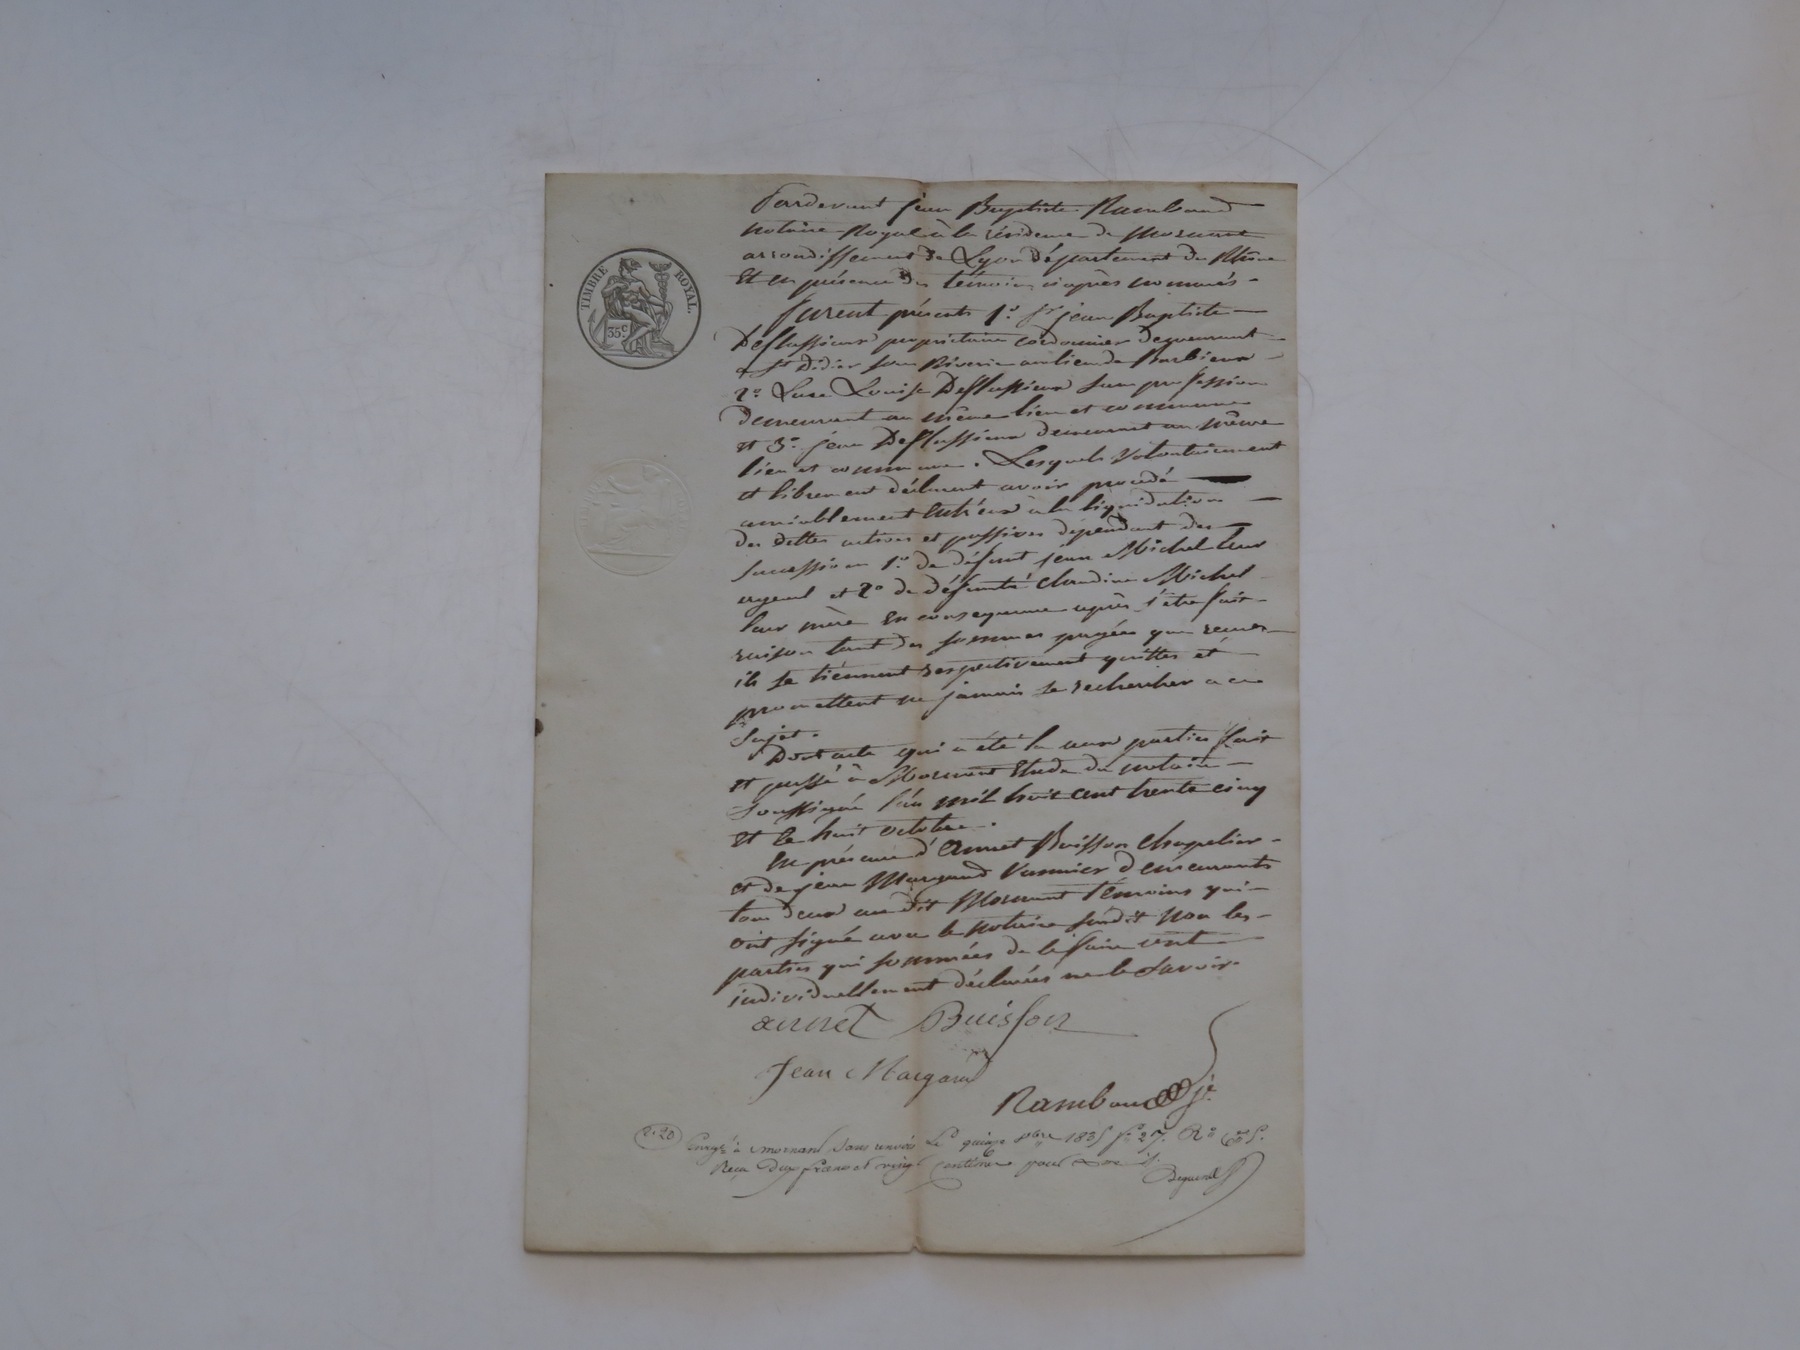 TIMBRE ROYAL.
35c
Pardevant jean Baptiste Rambaud
notaire Royal à la résidence de Mornant
arrondissement de Lyon département du Rhône
Et en présence des témoins ciaprès nommés
furent présents 1º. Sr jean Baptiste
Deflassieux propriétaire cordonnier demeurant
à St Didier sous Riverie au lieu de Barbieux
2º. Louise Deflassieux sans profession
demeurant au même lieu et commune
et 3º. jean Deflassieux demeurant au même
lieu et commune. Lesquels Volontairement
et librement déclarent avoir procédé
amiablement Entreux à la liquidation
des dettes actives et passives dépendant des
succession 1º. de défunt jean Michel leur
ayeul et 2º de défunte Claudine Michel
leur mère En consequence après s'être fait
raison tant des sommes payées que recues
ils se tiennent respectivement quittes et
promettent ne jamais se rechercher a ce
sujet.
Dont acte qui a été lu aux parties fait
et passé à Mornant Etude du notaire
soussigné l'an mil huit cent trente cinq
Et le huit octobre.
En présence d'Annet Buisson Chapelier
et de jean Margand Vannier demeurants
tous deux au dit Mornant témoins qui
ont signé avec le notaire susdit non les
parties qui sommées de le faire ont
individuellement déclarées ne le savoir.
annet Buisson
Jean Margand
Rambaud
2.20
Enregé à Mornant sans renvoi Le quinze 8bre 1835 fº 27. Rº
Reçu deux francs et vingt centimes pour